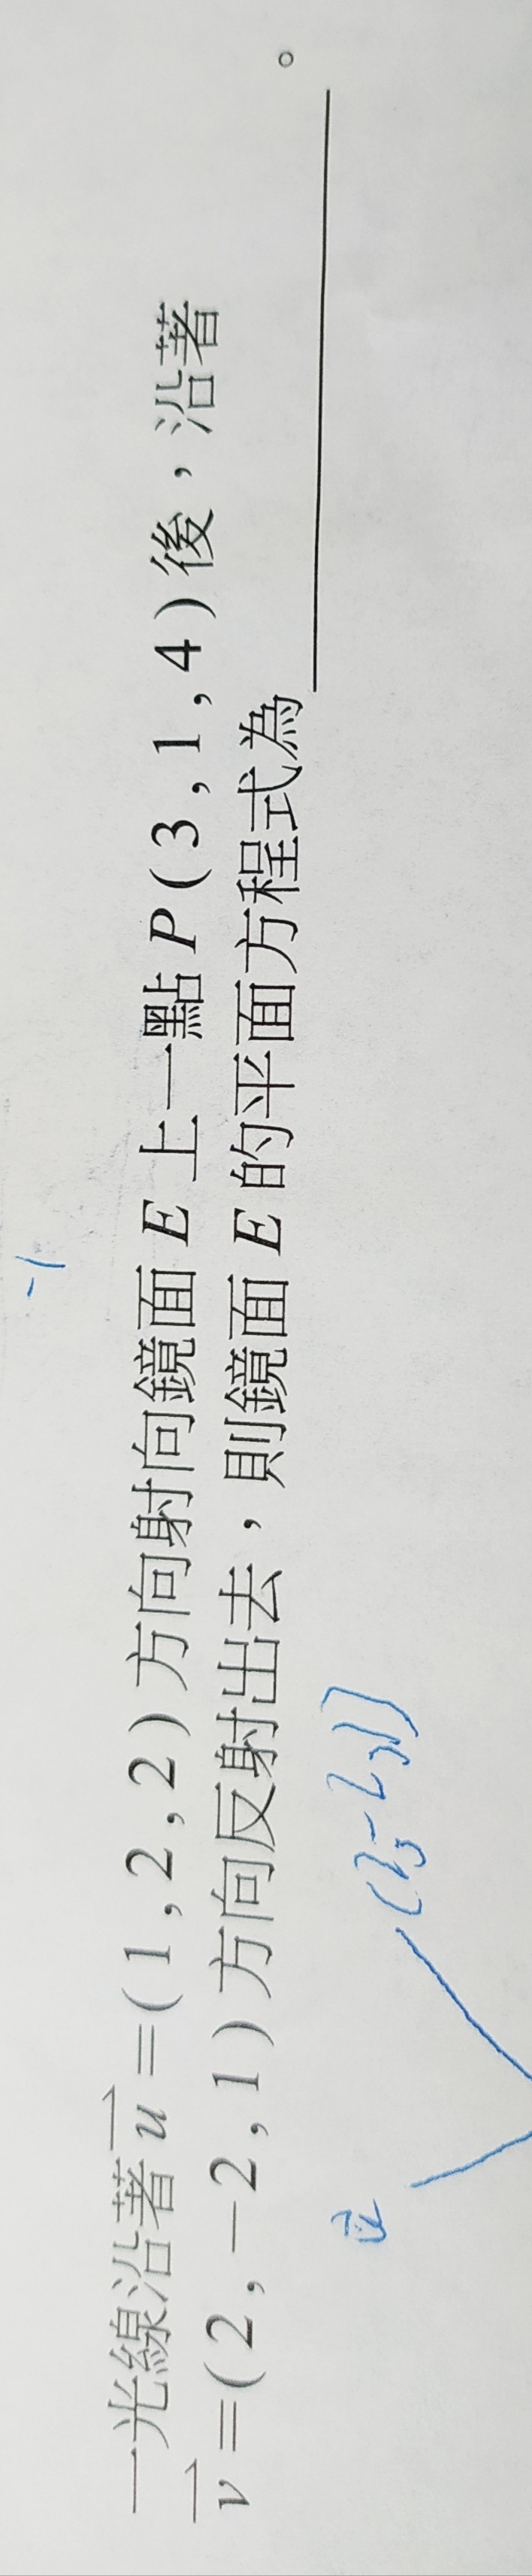 一光線沿著 u =( 1 , 2 , 2 ) 方向射向鏡面 E 上一點 P ( 3 , 1 , 4 ) 後，沿著
v =( 2 , −2 , 1 ) 方向反射出去，則鏡面 E 的平面方程式為________。
-1
(2,-2,1)